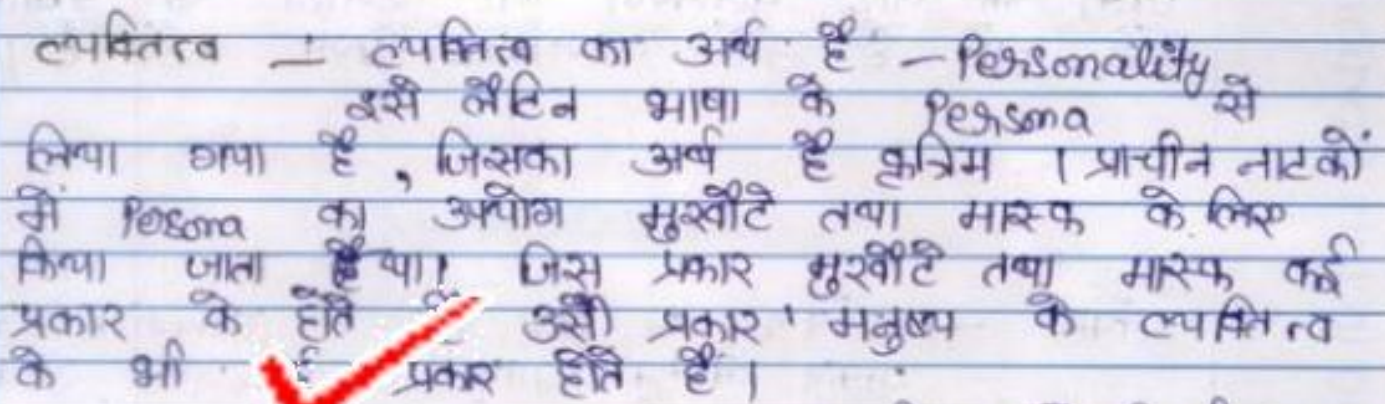 व्यक्तित्व — व्यक्तित्व का अर्थ है - Personality
इसे लैटिन भाषा के Persona से
लिया गया है, जिसका अर्थ है कृत्रिम । प्राचीन नाटकों
में Persona का उपयोग मुखौटे तथा मास्क के लिए
किया जाता था। जिस प्रकार मुखौटे तथा मास्क कई
प्रकार के होते उसी प्रकार मनुष्य के व्यक्तित्व
के भी प्रकार होते है ।